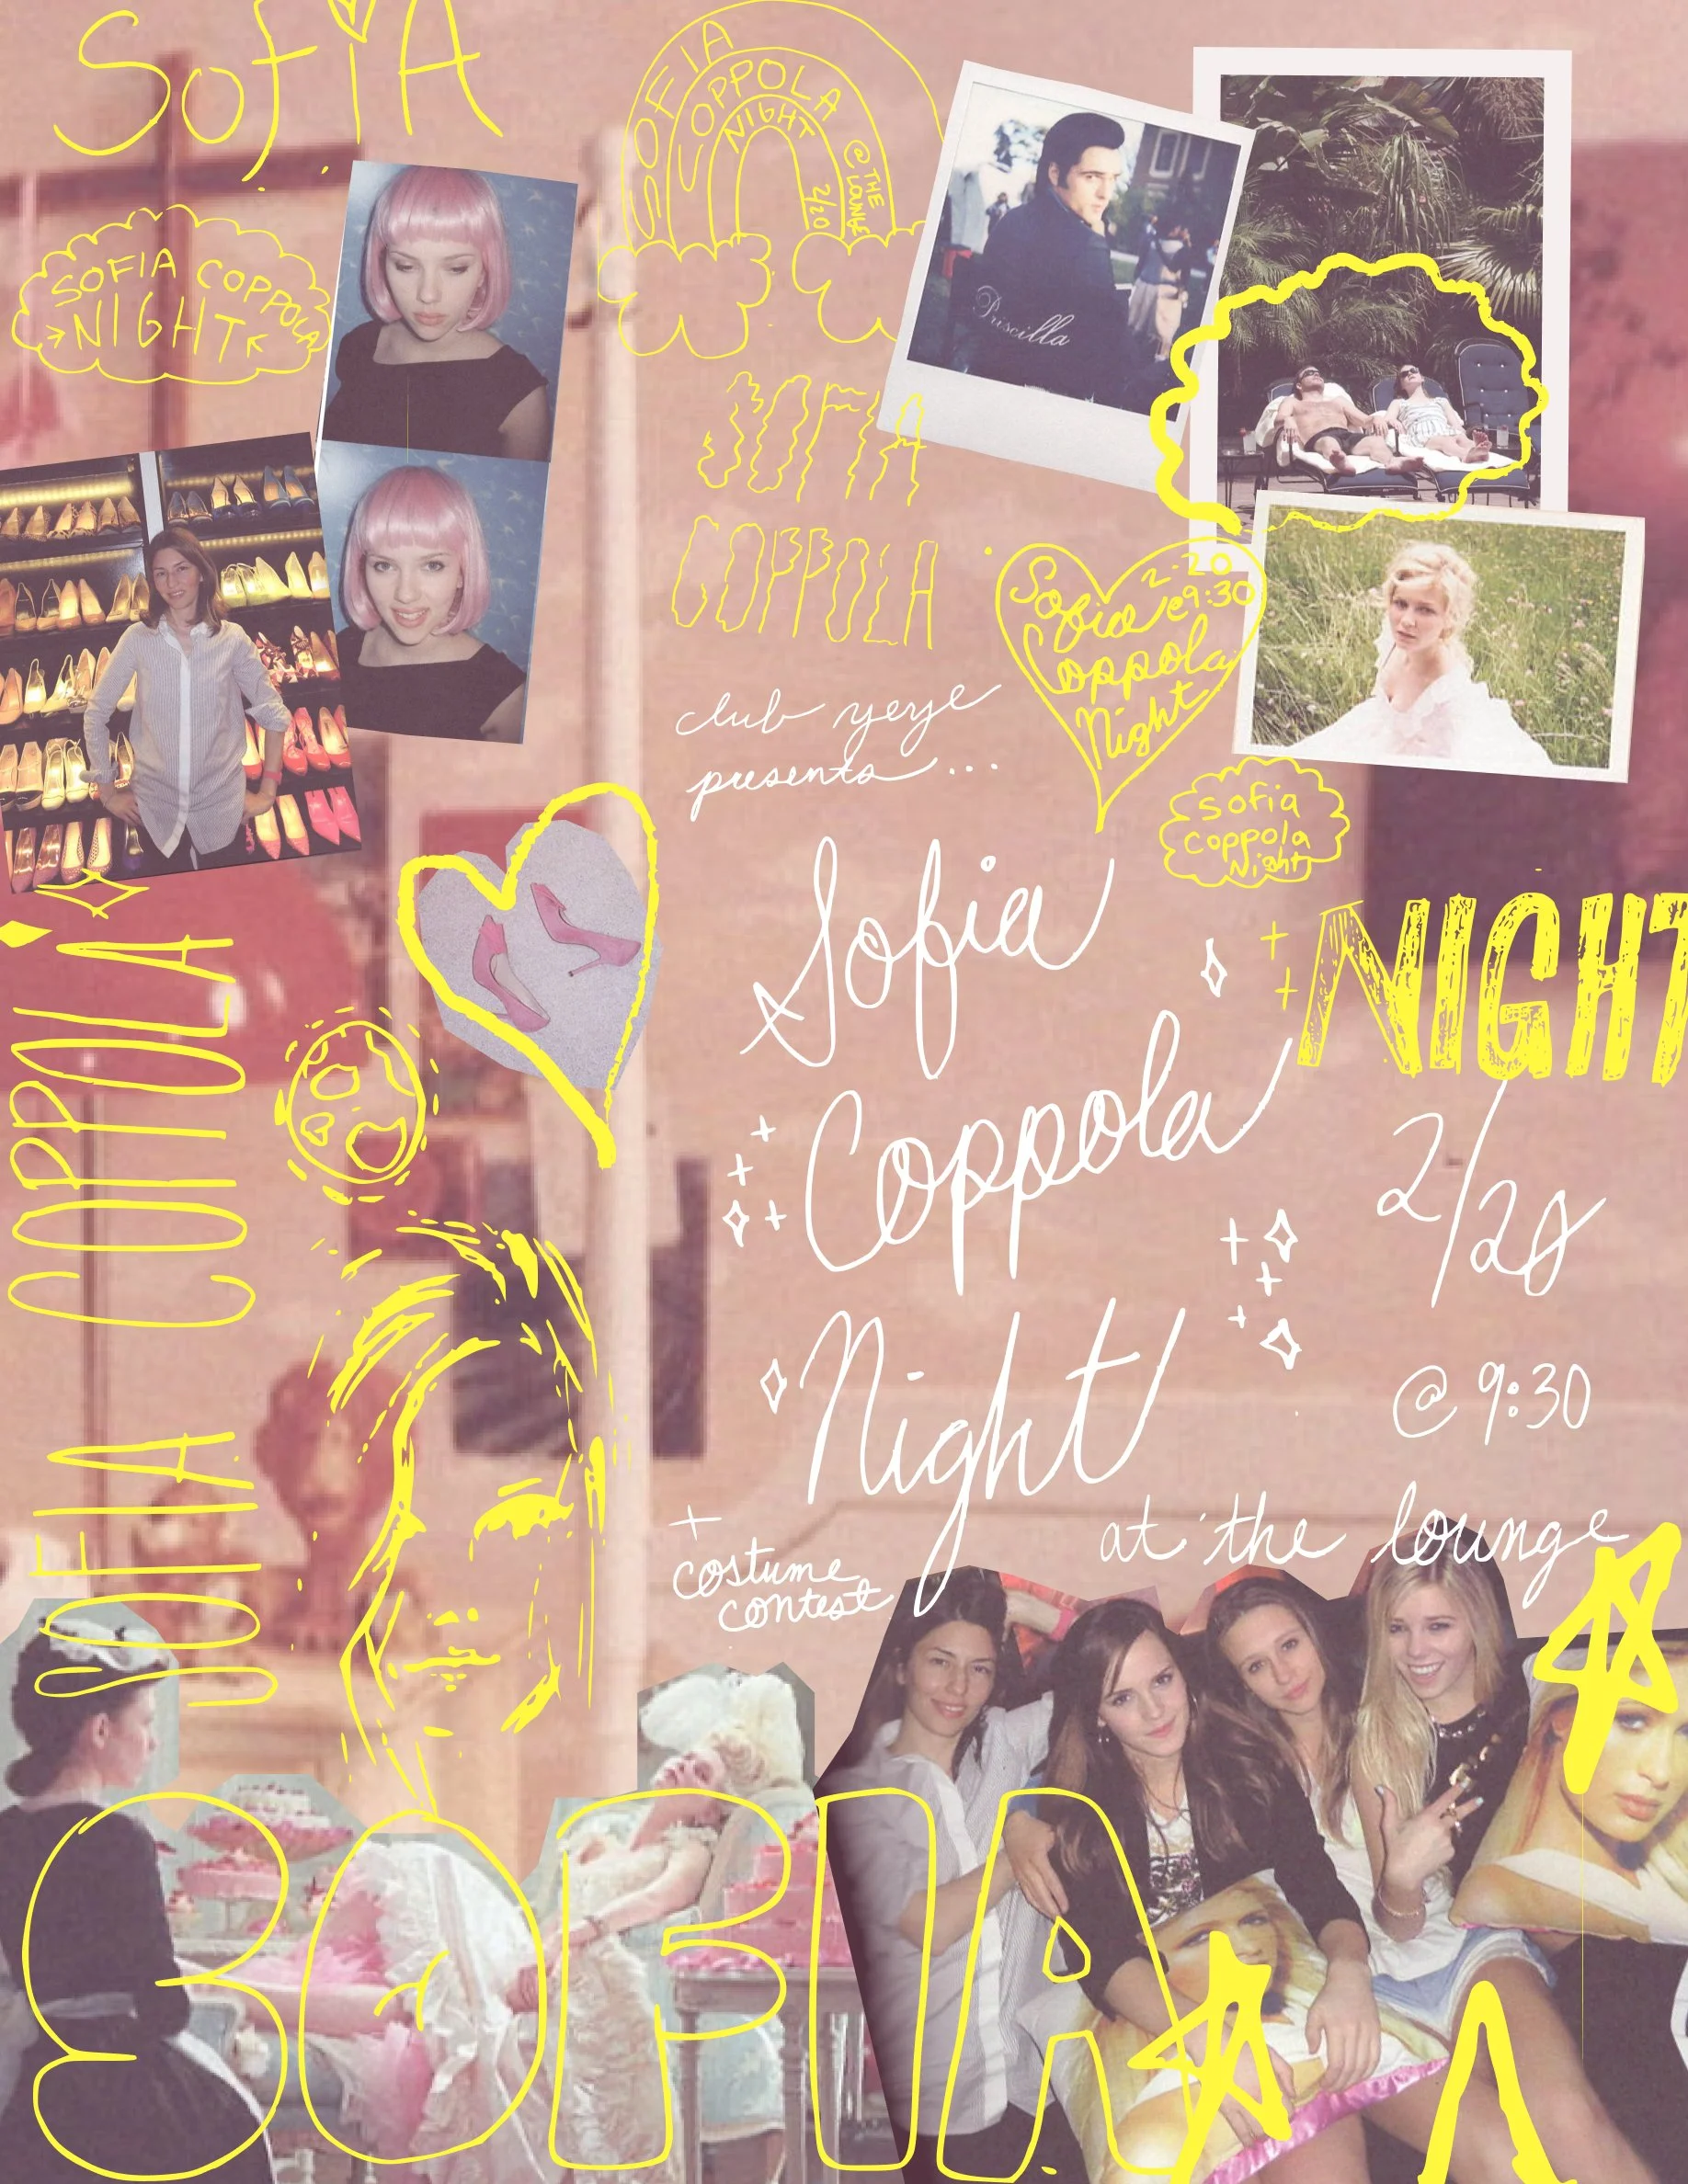 SofiA
SOFIA
COPPOLA
NIGHT
@ THE
LOUNGE
2/20
SOFIA COPPOLA
NIGHT
Priscilla
SOFIA
COPPOLA
2-20
@9:30
Sofia
Coppola
Night
club yeye
presents...
sofia
coppola
Night
Sofia
Coppola
Night
NIGHT
2/20
@ 9:30
at the lounge
+
costume
contest
SOFIA COPPOLA
SOFIA